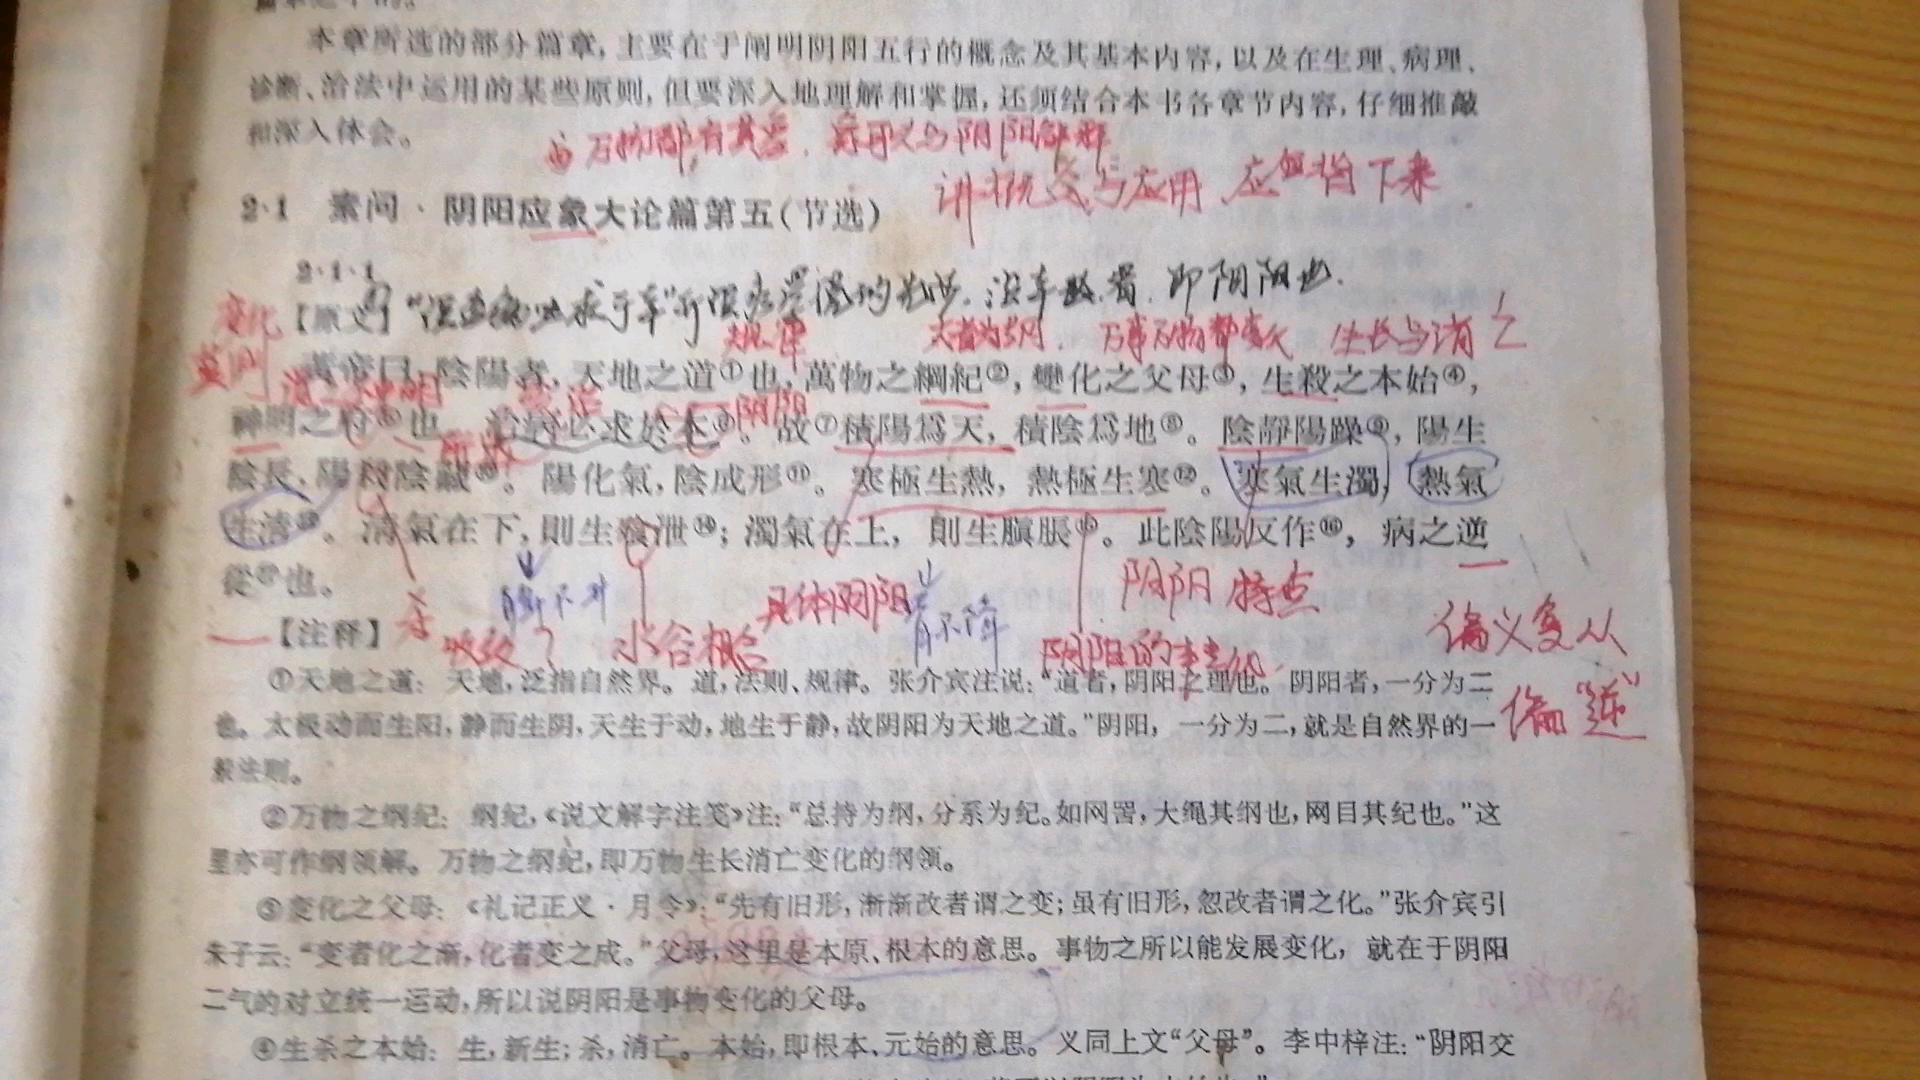 本章所选的部分篇章，主要在于阐明阴阳五行的概念及其基本内容，以及在生理、病理、
诊断、治法中运用的某些原则，但要深入地理解和掌握，还须结合本书各章节内容，仔细推敲
和深入体会。
由万物都有其象，
讲概念与应用 应但背下来
2·1 素问·阴阳应象大论篇第五（节选）
2·1·1
即阴阳也.
【原文】
变化
规律
万事万物都变久 生长与消亡
黃帝曰：陰陽者，天地之道①也，萬物之綱紀②，變化之父母③，生殺之本始④，
阴阳
神明之府⑤也，治病必求於本⑥。故⑦積陽爲天，積陰爲地⑧。陰靜陽躁⑨，陽生
陰長，陽殺陰藏⑩。陽化氣，陰成形⑪。寒極生熱，熱極生寒⑫。寒氣生濁，熱氣
生清⑬。清氣在下，則生飧泄⑭；濁氣在上，則生䐜脹⑮。此陰陽反作⑯，病之逆
從⑰也。
阴阳特点
具体阴阳
胃不降
水谷相合
偏义复从
偏“逆”
【注释】
①天地之道： 天地，泛指自然界。道，法则、规律。张介宾注说：“道者，阴阳之理也。阴阳者，一分为二
也。太极动而生阳，静而生阴，天生于动，地生于静，故阴阳为天地之道。”阴阳，一分为二，就是自然界的一
般法则。
②万物之纲纪： 纲纪，《说文解字注笺》注：“总持为纲，分系为纪。如网罟，大绳其纲也，网目其纪也。”这
里亦可作纲领解。万物之纲纪，即万物生长消亡变化的纲领。
③变化之父母：《礼记正义·月令》：“先有旧形，渐渐改者谓之变；虽有旧形，忽改者谓之化。”张介宾引
朱子云：“变者化之渐，化者变之成。”父母，这里是本原、根本的意思。事物之所以能发展变化，就在于阴阳
二气的对立统一运动，所以说阴阳是事物变化的父母。
④生杀之本始： 生，新生；杀，消亡。本始，即根本、元始的意思。义同上文“父母”。李中梓注：“阴阳交